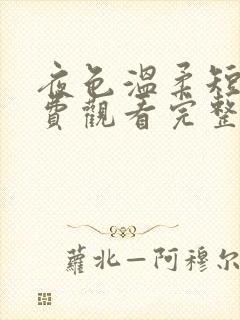 夜色溫柔短
費觀看完整
蘿北—阿穆尔